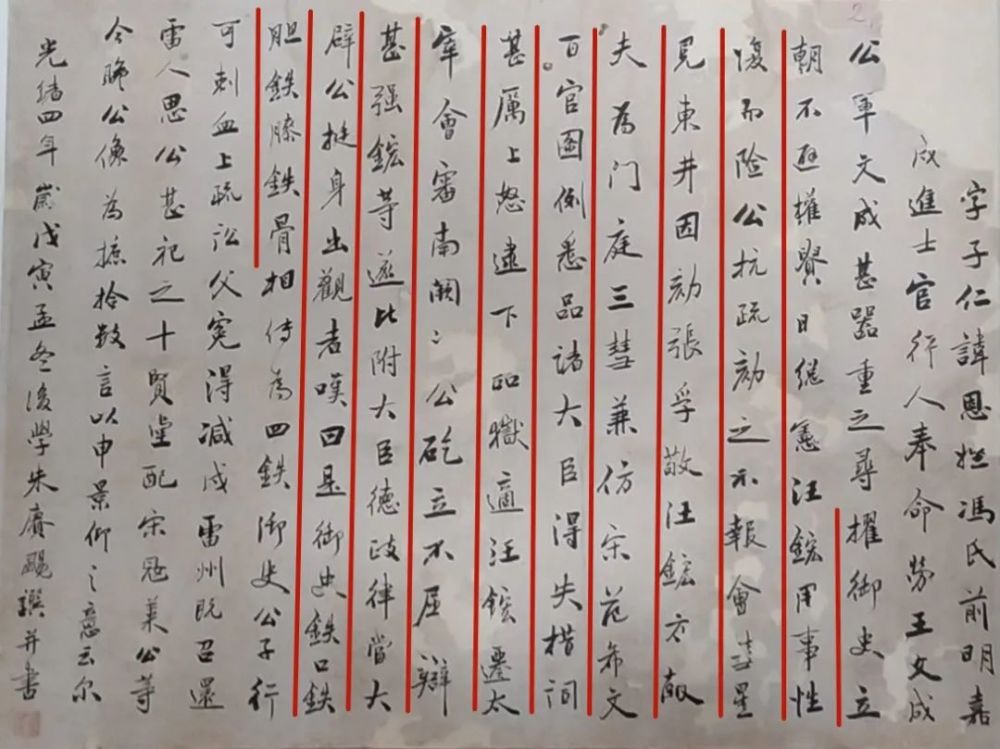 2.
字子仁諱恩姓馮氏前明嘉
戌進士官行人奉命勞王文成
公軍文成甚器重之尋擢御史立
朝不避權賢日繩憲汪鋐用事性
愎而險公抗疏劾之不報會彗星
見東井因劾張孚敬汪鋐方献
夫為門庭三彗兼仿宋范希文
百官圖例悉品諸大臣得失措詞
甚厲上怒逮下詔獄適汪鋐遷太
宰會審南闕々公矻立不屈辯
甚强鋐等遂比附大臣德政律當大
辟公挺身出觀者嘆曰是御史鉄口鉄
胆鉄膝鉄骨相传為四鉄御史公子行
可刺血上疏讼父寃得减戍雷州既召還
雷人思公甚祀之十賢堂配宋冦莱公等
今睎公像為摭拾数言以申景仰之意云尔
光緒四年嵗戊寅孟冬後學朱賡颺譔并書